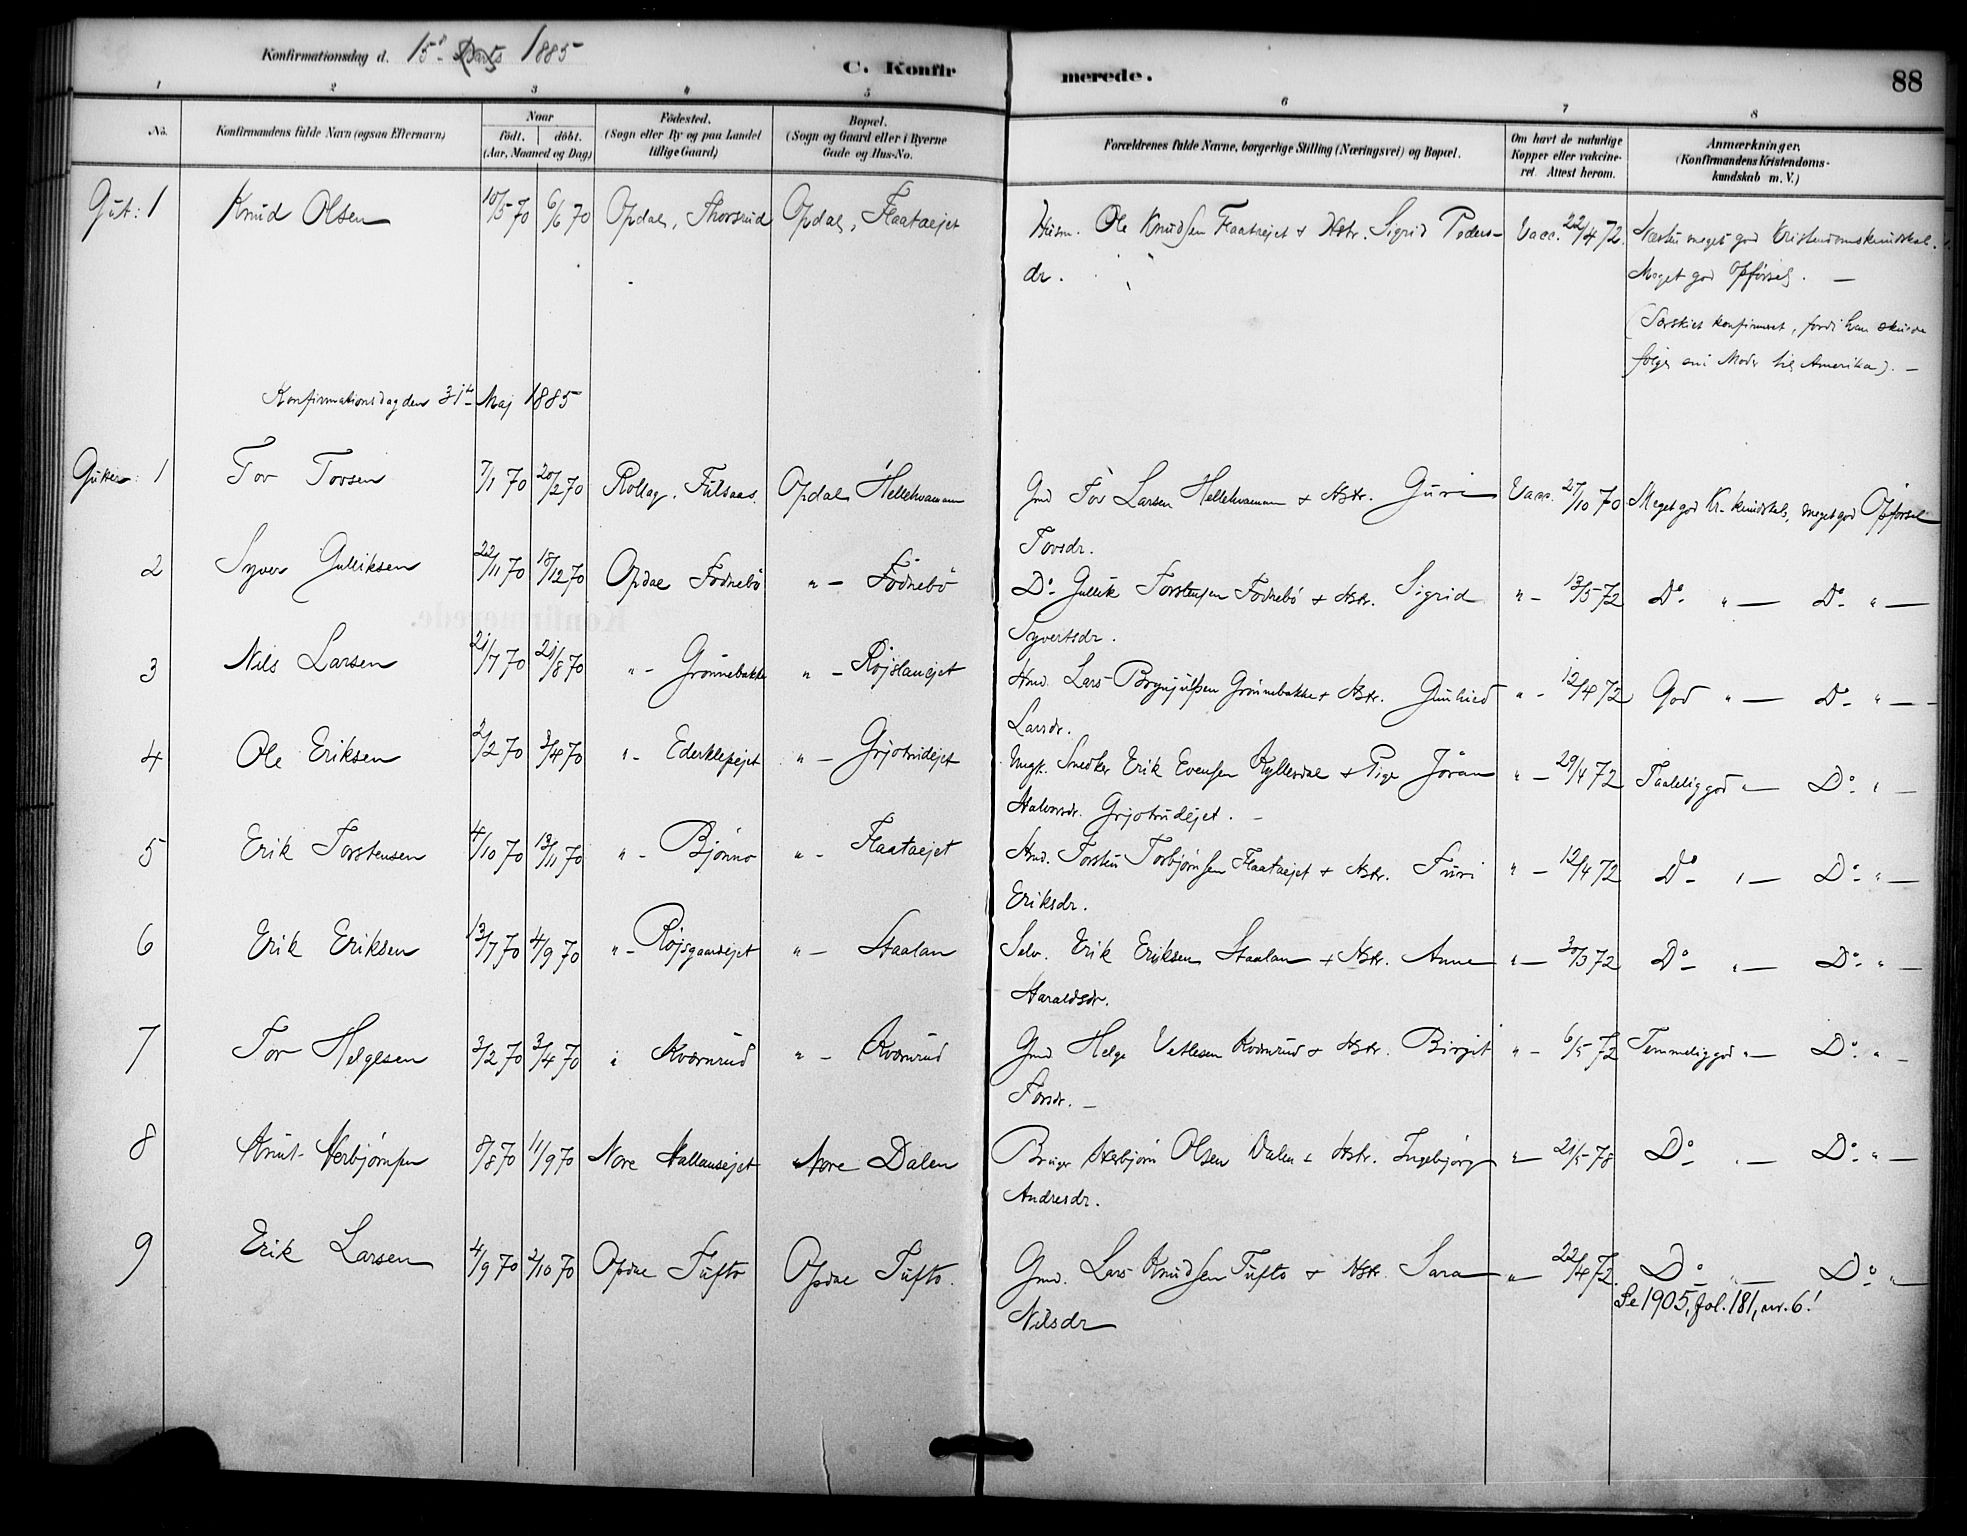 Konfirmationsdag d. 15de Marts 1885
C. Konfirmerede.
88
1 2 3 4 5 6 7 8
No.
Konfirmandens fulde Navn (ogsaa Efternavn)
Naar
födt. döbt.
(Aar, Maaned og Dag)
Födested.
(Sogn eller By og paa Landet
tillige Gaard)
Bopæl.
(Sogn og Gaard eller i Byerne
Gade og Hus-No.
Forældrenes fulde Navne, borgerlige Stilling (Næringsvei) og Bopæl.
Om havt de naturlige
Kopper eller vakcine-
ret. Attest herom.
Anmærkninger.
(Konfirmandens Kristendoms-
kundskab m. V.)
Gut: 1 Knud Olsen 10/5 70 6/6 70 Opdal, Thorsrud Opdal, Flaataejet Husm. Ole Knudsen Flaataejet & Hstr. Sigrid Peders- Vacc. 22/4 72. Næsten meget god Kristendomskundskab.
dr. Meget god Opförsel. —
(Særskilt konfirmeret, fordi han skulde
følge sin Moder til Amerika). —
Konfirmationsdag den 31te Maj 1885
Gutter: 1 Tov Tovsen 7/1 70 20/2 70 Rollag. Fulsaas. Opdal Hellekvamm Gmd Tov Larsen Hellekvamm & Hstr. Guri Vacc. 27/10 70 Meget god Kr. kundskab, meget god Opförsel
Tovsdr.
2 Syver Gulliksen 22/11 70 18/12 70 Opdal Födnebö " – Födnebö Do. Gullik Torstensen Födnebö & Hstr. Sigrid " – 13/5 72 Do. " — Do. " —
Syvertsdr.
3 Nils Larsen 21/7 70 21/8 70 " – Grönnebakke " – Röjslauejet Hmd. Lars Brynjulfsen Grönnebakke & Hstr. Gunhild " – 12/4 72 God " — Do. " —
Larsdr.
4 Ole Eriksen 2/2 70 3/4 70 " – Ederklepejet " – Grjotrudejet Ungk. Snedker Erik Evensen Kyllesdal & Pige Jöran " – 29/4 72 Taalelig god " — Do. " —
Halvorsdr. Grjotrudejet. –
5 Erik Torstensen 4/10 70 13/11 70 " – Bjönno " – Flaataejet Hmd. Torsten Torbjörnsen Flaataejet & Hstr. Turi " – 12/4 72 Do. " — Do. " —
Eriksdr.
6 Erik Eriksen 13/7 70 4/9 70 " – Röjsgaardejet " – Staalan Selv. Erik Eriksen Staalan & Hstr. Anne " – 30/3 72 Do. " — Do. " —
Haraldsdr.
7 Tov Helgesen 3/2 70 3/4 70 " Kværnrud " – Kværnrud Gmd Helge Vetlesen Kværnrud & Hstr. Birgit " – 6/5 72 Temmelig god " — Do. " –
Tovsdr. –
8 Knut Herbjörnsen 8/8 70 11/9 70 Nore Hallansejet Nore Dalen Bruger Herbjörn Olsen Dalen & Hstr. Ingebjörg " – 21/5 78 Do. " — Do. " —
Andresdr.
9 Erik Larsen 4/9 70 2/10 70 Opdal Tufto Opdal Tufto. Gmd. Lars Knudsen Tufto & Hstr. Sara " – 22/4 72. Do. " — Do. " —
Nilsdr
Se 1905, fol. 181, nr. 6!